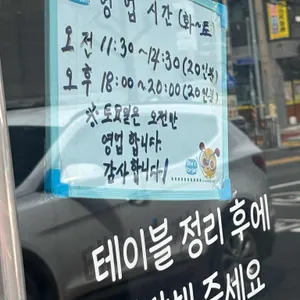 영업 시간 (화~토)
오전 11:30~14:30 (20인분)
오후 18:00~20:00 (20인분)
※ 토요일은 오전만
영업 합니다.
감사합니다!
테이블 정리 후에
주세요